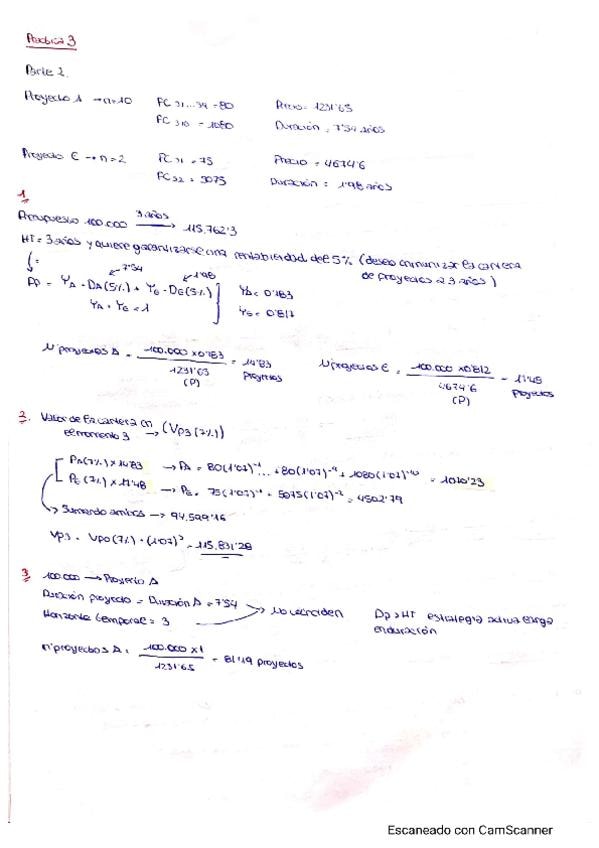 Práctica 3
Parte 2.
Proyecto A → n=10 FC s1...s9 = 80 Precio = 1231'65
FC s10 = 1080 Duración = 7'54 años
Proyecto E → n=2 FC s1 = 75 Precio = 4674'6
FC s2 = 5075 Duración = 1'98 años
1.
Presupuesto 100.000 3 años → 115.762'3
HT = 3 años y quiere garantizarse una rentabilidad del 5% (deseo inmunizar la cartera
de proyectos a 3 años)
7'54 1'98
Dp = YA · DA(5%) + YE · DE(5%) YA = 0'183
YA + YE = 1 YE = 0'817
Nº proyectos A = 100.000 x 0'183 / 1231'65 (P) = 14'83 proyectos Nº proyectos E = 100.000 x 0'812 / 4674'6 (P) = 17'48 proyectos
2. Valor de la cartera en
el momento 3 → (Vp3 (7%))
PA (7%) x 14'83 → PA = 80(1'07)⁻¹ ... + 80(1'07)⁻⁹ + 1080(1'07)⁻¹⁰ = 1010'23
PE (7%) x 17'48 → PE = 75(1'07)⁻¹ + 5075(1'07)⁻² = 4502'79
Sumando ambos → 94.599'16
Vp3 = Vp0 (7%) · (1'07)³ = 115.831'28
3. 100.000 → Proyecto A
Duración proyecto = Duración A = 7'54 → No coinciden Dp > HT estrategia activa larga
Horizonte temporal = 3 en duración
nº proyectos A = 100.000 x 1 / 1231'65 = 81'19 proyectos
Escaneado con CamScanner